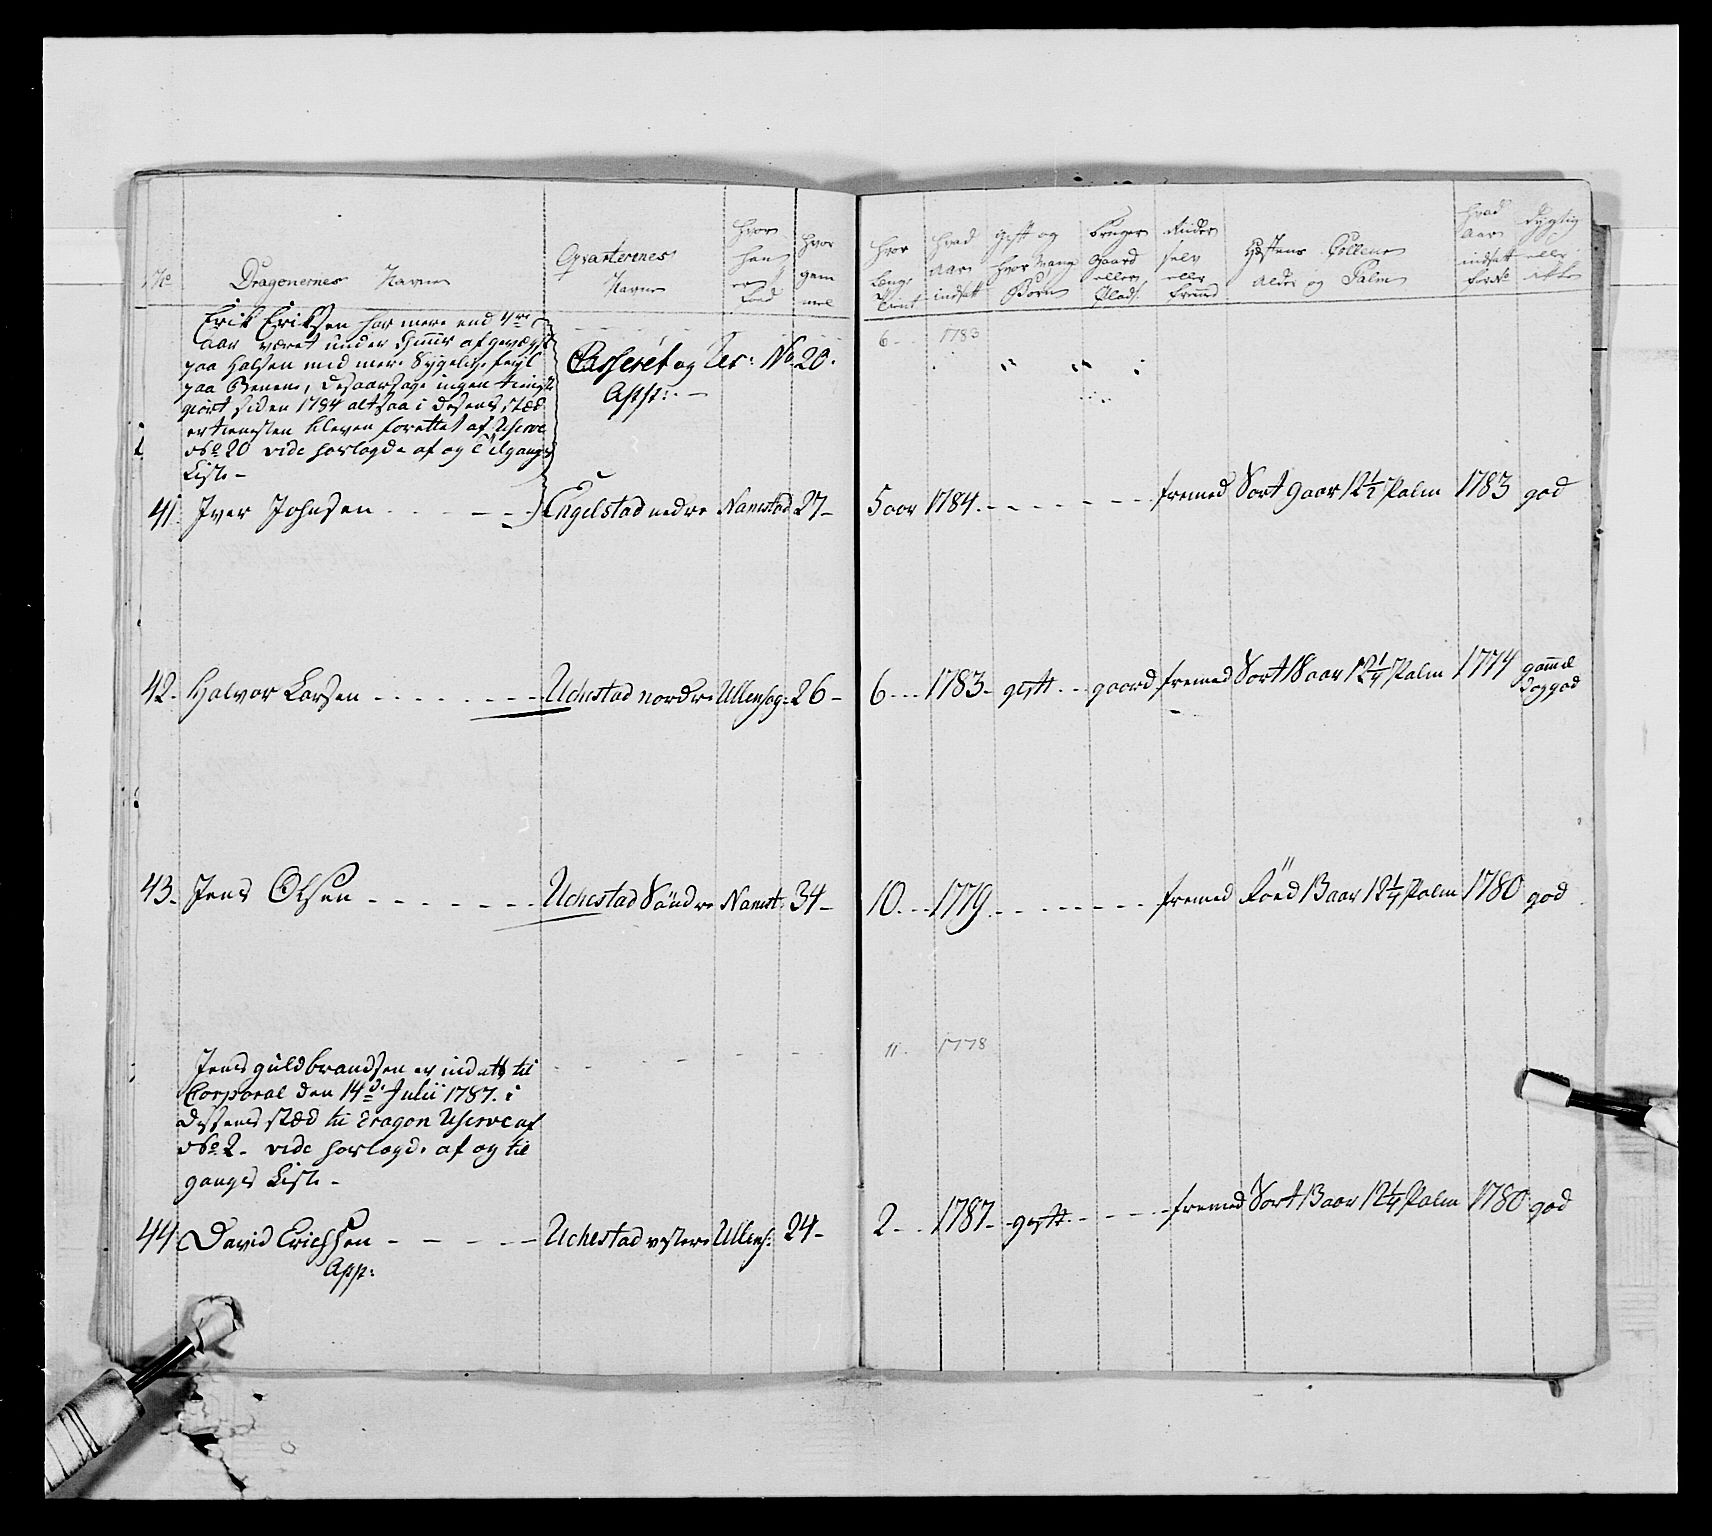 No Dragonernes Navne Qvarterenes Navne Hvor han er fød Hvor gammel
Hvor Længe tient Hvad Aar indsatt Gift og Hvor mange Børn Bruger Gaard eller Plads Rider selv eller fremed Hæstens Colleur Alder og Palm Hvad Aar indsatt første Dygtig eller ikke
Erik Eriksen har mere end 4re
Aar været under
paa Halsen med mere
paa Benene,
giort siden 1784 altsaa i Desens stæd
af Reserve
No 20 vide hoslagde af og Tilgangs
Liste -
Casseret og Res: No 20.
App: -
6 - - 1783
41. Iver Johnsen - - - - Engelstad nedre Nannestad 27 - 5 aar 1784 - - - - - - fremed Sort 9 aar 12 1/2 Palm 1783 god
42. Halvor Larsen - - - - - - - Uchestad nordre Ullensag: 26 - 6 - - - 1783 - gift - - gaard fremed Sort 18 aar 12 1/4 Palm 1774 gamel
dog god
43. Jens Olsen - - - - - - - Uchestad Söndre Nannest: 34 - 10 - - - 1779 - - - - - - - - fremed Röed 13 aar 12 1/4 Palm 1780 god
Jens Guldbrandsen er indsatt til
Corporal den 14de Julii 1787. i
Dessens stæd til Dragon Reserve af
No 2. vide hoslagde af og til
gangs Liste -
11. 1778
44. David Erichsen - - - - - Uchestad vestere Ullens: 24 - 2 - - 1787 - gift - - - - - fremed Sort 13 aar 12 1/4 Palm 1780 god
App: